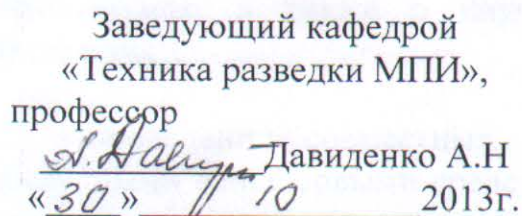 Заведующий кафедрой
«Техника разведки МПИ»,
профессор
Давиденко А.Н
«30» 10 2013г.